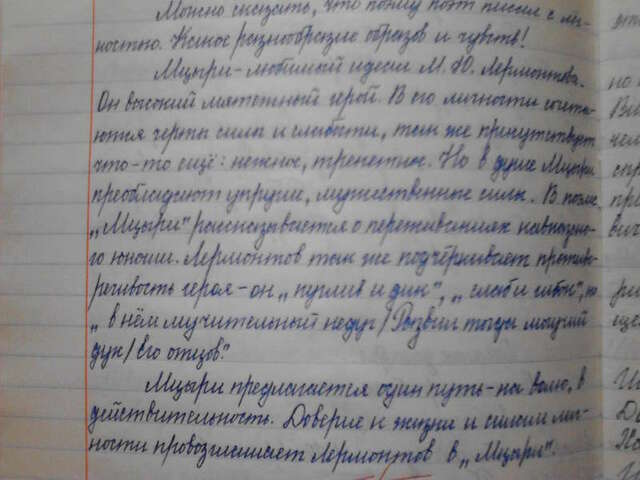 Можно сказать, что поэму поэт писал с лич-
ностью. Какое разнообразие образов и чувств!
Мцыри - любимый идеал М. Ю. Лермонтова.
Он высокий мятежный герой. В его личности сочета-
ются черты силы и слабости, так же присутствует
что-то ещё: нежное, трепетное. Но в душе Мцыри
преобладают упругие, мужественные силы. В поэме
„Мцыри" рассказывается о переживаниях кавказско-
го юноши. Лермонтов так же подчёркивает противо-
речивость героя - он „пуглив и дик", „слаб и гибок", но
„в нём мучительный недуг / Развил тогда могучий
дух / Его отцов."
Мцыри предлагается один путь - на волю, в
действительность. Доверие к жизни и силам лич-
ности провозглашает Лермонтов в „Мцыри".